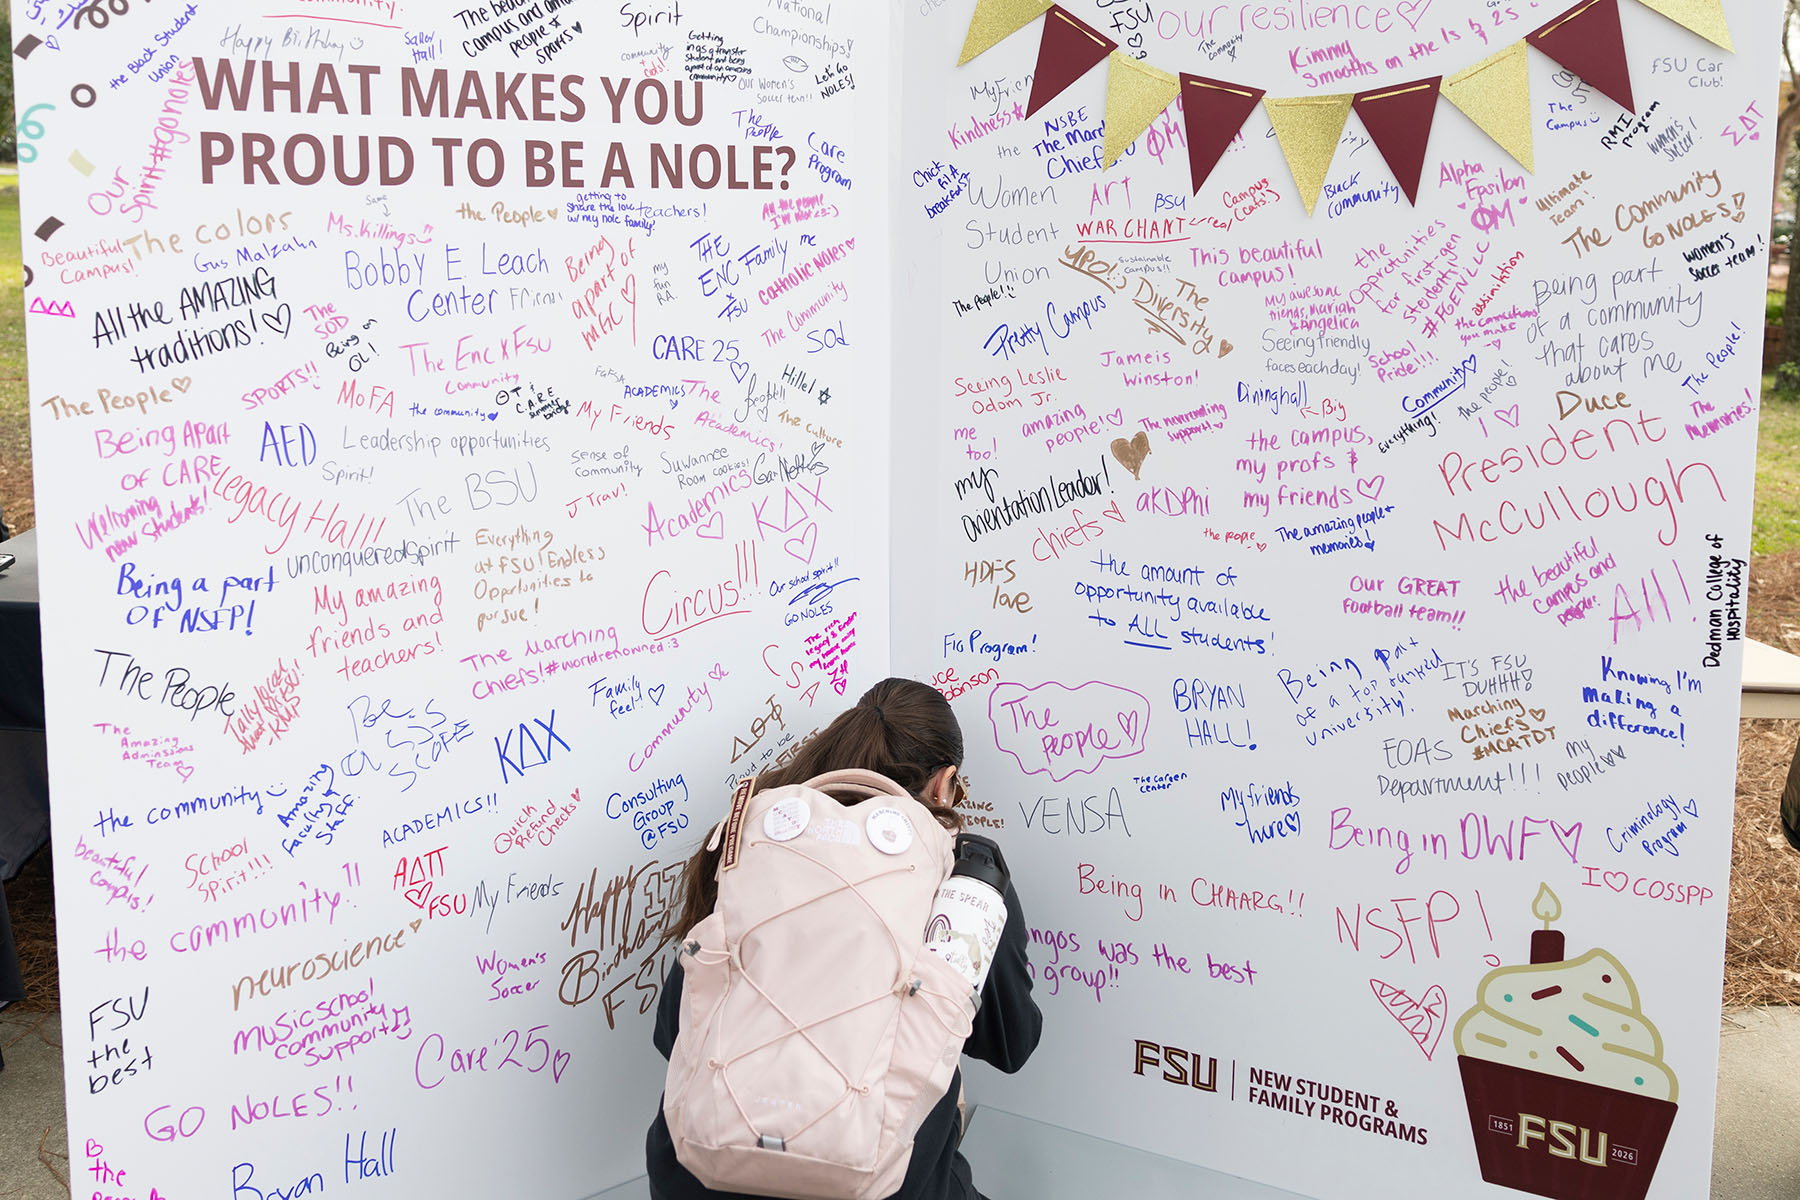 the Black Student
Union
Happy Birthday
Sallay
Hall!
Spirit
National
Championships!
Getting
community
Our Women's
Soccer team!!
Let's Go
NOLES!
WHAT MAKES YOU
PROUD TO BE A NOLE?
Our
Spirit #gonoles
The
People
Care
Program
Same
Ms. Killings
the People
getting to
share the love
w/ my nole family!
teachers!
All the people
Beautiful
Campus!
The colors
Gus Malzahn
Bobby E. Leach
Center
Being
apart of
MGC
my
fun
R.A.
THE
ENC
X
FSU
Family
me
catholic Noles
All the AMAZING
traditions!
The
SOD
Being on
OL!
The Enc X FSU
Community
CARE 25
The Community
SOd
The People
SPORTS!!
MoFA
the community
OT &
C.A.R.E
summer
bridge
FAFSA
ACADEMICS
The
Academics!
people!!
Hillel
The culture
My Friends
Being Apart
of CARE
AED
Leadership opportunities
Spirit!
The BSU
sense of
Community
Suwannee
Room cookies!
Garnettes
J Trav!
Welcoming
new students!
Legacy Hall!
Academics
ΚΔΧ
unconquered spirit
Everything
at FSU! Endless
Opportunities to
pursue!
Being a part
OF NSFP!
My amazing
friends and
teachers!
Circus!!!
Our school spirit!!
GO NOLES
The Marching
Chiefs! #worldrenowned :3
The People
Family
feel!
Community
CSA
The
Amazing
Admissions
Team
ΚΔΧ
ΔΘΦ
Proud to be
FIRST
the community
Amazing
Faculty &
Staff.
ACADEMICS!!
Quick
Refund
Checks
Consulting
Group
@ FSU
beautiful
campus!
School
Spirit!!!!
ΑΔΠ
FSU
My Friends
Happy 17
Birthday
FSU
the community!!
neuroscience
Women's
Soccer
FSU
the
best
Music School
community
support
Care '25
GO NOLES!!
the
Bryan Hall
FSU
The
Community
our resilience
Kimmy
smooths on the 1s & 2s
FSU Car
Club!
My Friends
Kindness
the
NSBE
The Marching
Chiefs
The
Campus
RMI
Program
Women's
Soccer!
ΣΔΤ
Chick
fil A
breakfast
Women
Student
Union
Art
BSU
Campus
(Cats!)
WAR CHANT
real
Black
Community
Alpha
Epsilon
ΦM
Ultimate
Team!
The Community
GO NOLES!
UPO!
Sustainable
campus!!
This beautiful
Campus!
the
opportunities
for first-gen
students!!
#FGEN:LLC
Women's
Soccer team!
The People!!
Pretty Campus
The
Diversity
My awesome
friends, Mariah
& Angelica
Seeing friendly
faces each day!
School
Pride!!!!
the connections
you make
Being part
of a community
that cares
about me
Jameis
Winston!
Seeing Leslie
Odom Jr.
me
too!
amazing
people!
The surrounding
support!
Dining hall
Big
Community
Everything!
The people!
I
Duce
The People!
The
Memories!
my
Orientation Leader!
the campus,
my profs &
my friends
President
McCullough
chiefs
aKDPhi
the people
The amazing people &
memories!
HDFS
love
the amount of
opportunity available
to ALL students!
Our GREAT
football team!!
the beautiful
campus and
people!
All!
Dedman College of
Hospitality
FIG Program!
Robinson
The
people
BRYAN
HALL!
Being part
of a top ranked
university!
IT'S FSU
DUHHH!
Marching
Chiefs
#MCATDT
Knowing I'm
Making a
difference!
EOAS
Department!!!
my
People
VENSA
The Career
Center
My friends
here
Being in DWF
Criminology
Program
I COSSPP
Being in CHAARG!!
NSFP!
was the best
group!!
THE SPEAR
FSU
NEW STUDENT &
FAMILY PROGRAMS
1851
FSU
2026